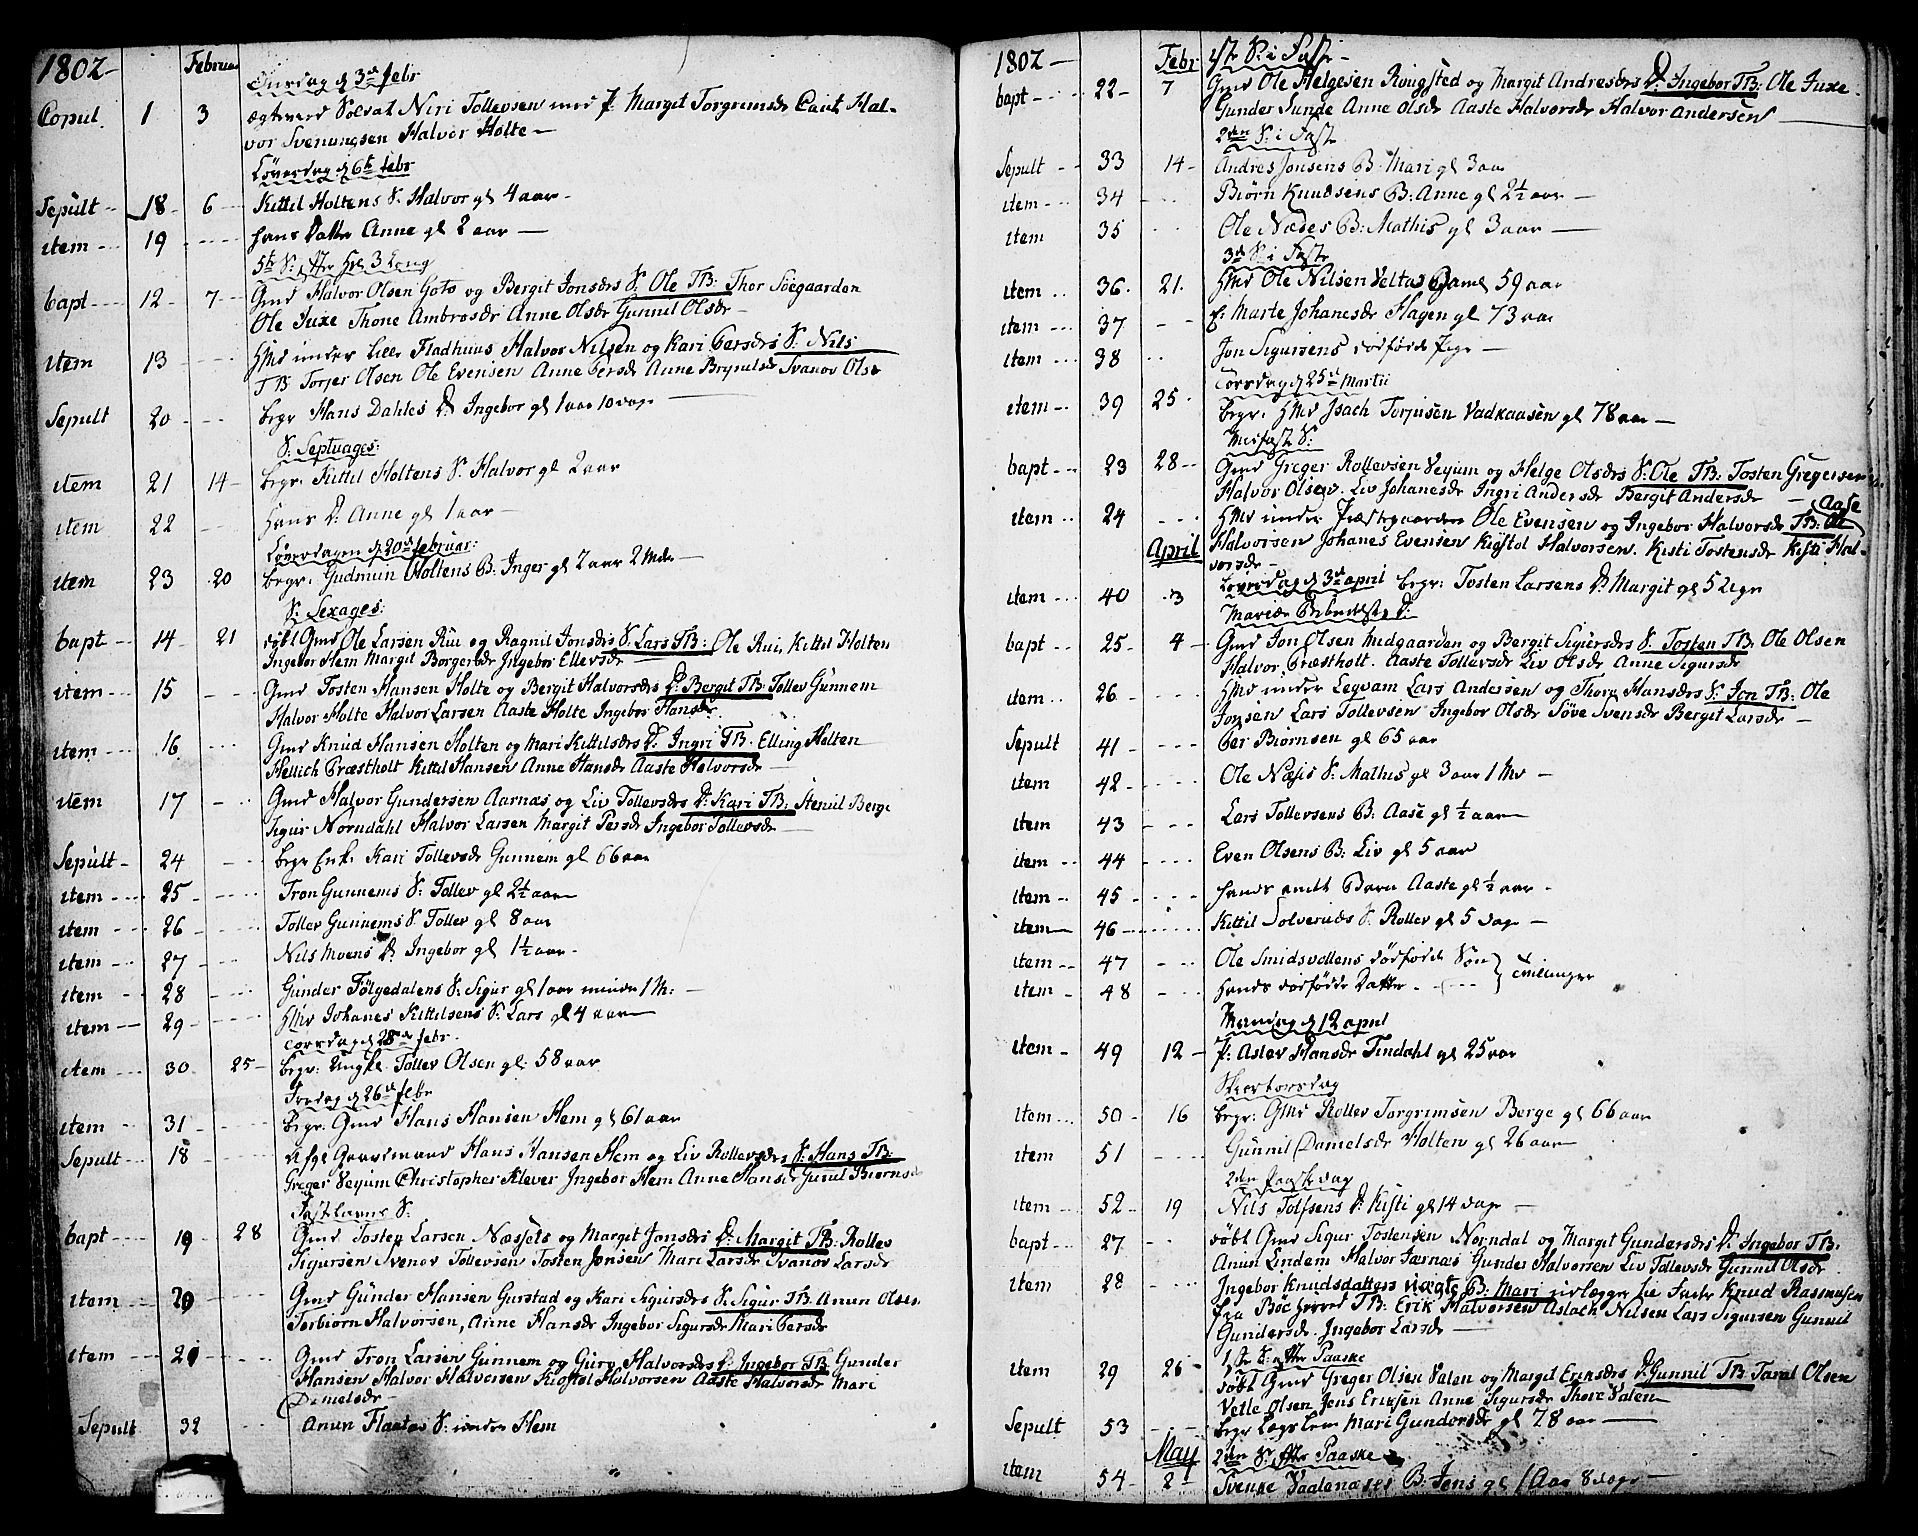 1802
Februar
Onsdag d 3de febr
Copul. 1 3 ægtevied Soldat Niri Tollevsen med P. Margit Torgrimsdr Caut. Hal-
vor Svenungsen Halvor Holte
Løverdag d 6te febr
Sepult 18 6 Kittil Holtens S. Halvor gl 4 aar
item 19 hans Datter Anne gl 2 aar
5te S: efter Hel 3 Kong
bapt 12 7 Gmd Halvor Olsen Goto og Bergit Jonsdrs S. Ole TB: Thor Söegaarden
Ole Juxe Thone Ambrosdr Anne Olsdr Gunnil Olsdr
item 13 Hmd under Lille Fladhuus Halvor Nilsen og Kari Persdrs S. Nils
TB: Torjer Olsen Ole Evensen Anne Persdr Anne Brynilsdr Svanov Olsdr
Sepult 20 begr Hans Dahles D. Ingebor gl 1 aar 10 dage
S. Septuages:
item 21 14 begr. Kittil Holtens S. Halvor gl 2 aar
item 22 Hans D. Anne gl 1 aar
Løverdagen d 20de februar:
item 23 20 begr. Gudmun Holtens B. Inger gl 2 aar 2 Mdr
S. Sexages:
bapt 14 21 døbt Gmd Ole Larsen Rui og Ragnil Jonsdrs S. Lars TB: Ole Rui, Kittil Holten
Ingebor Hem Margit Borgersdr Ingebor Ellevsdr
item 15 Gmd Tosten Hansen Holte og Bergit Halvorsdrs D. Bergit TB: Tollev Gunnem
Halvor Holte Halvor Larsen Aaste Holte Ingebor Hansdr
item 16. Gmd Knud Hansen Holten og Mari Kittilsdrs D. Ingri TB: Elling Holten
Hellich Præstholt Kittil Hansen Anne Hansdr Aaste Halvorsdr
item 17 Gmd Halvor Gundersen Aarnæs og Liv Tollevsdrs D. Kari TB: Stenil Berge
Sigur Norndahl Halvor Larsen Margit Persdr Ingebor Tollevsdr
Sepult 24 begr Enke Kari Tollevsdr Gunnem gl 66 aar
item 25 Tron Gunnems S. Tollev gl 2½ aar
item 26 Tollev Gunnems S. Tollev gl 8 aar
item 27 Nils Moens D Ingebor gl 1½ aar
item 28 Gunder Fölgedalens S. Sigur gl 1 aar mindr 1 M:
item 29 Hmd Johanes Kittilsens S. Lars gl 4 aar
Torsdag d 25de febr.
item 30 25 begr: Ungke. Tollev Olsen gl. 58 aar
Fredag d 26de febr
item 31 Begr. Gmd Hans Hansen Hem gl 61 aar
Sepult 18 Afgl Gaardmand Hans Hansen Hem og Liv Rollevsdrs S. Hans TB:
Greger Veyum Christopher Klever Ingebor Hem Anne Hansdr Gunnil Biørnsdr
Fastelavns S.
bapt 19 28 Gmd Tosten Larsen Næssets og Margit Jonsdrs D: Margit TB: Rollev
Sigursen Svenov Tollevsen Tosten Jonsen Mari Larsdr Svanov Larsdr
item 20 Gmd Gunder Hansen Gurstad og Kari Sigursdrs S. Sigur TB: Anun Olsen
Torbiørn Halvorsen, Anne Hansdr Ingebor Sigursdr Mari Persdr
item 21 Gmd Tron Larsen Gunnem og Guro Halvorsdrs D. Ingebor TB: Gunder
Hansen Halvor Halvorsen Kiøstol Halvorsen Aaste Halvorsdr Mari
Danielsdr
Sepult 32 Anun Flaatas S: under Hem
1802
Febr 1ste S. i Faste
bapt 22 7 Gmd Ole Helgesen Roigsted og Margit Andresdrs D. Ingebor TB: Ole Juxe
Gunder Sunde Anne Olsdr Aaste Halvorsdr Halvor Andersen
2den S: i Faste
Sepult 33 14 Andres Jonsens B. Mari gl 3 aar
item 34 Biørn Knudsens B: Anne gl 2½ aar
item 35 Ole Nædes B: Mathis gl 3 aar
3de S: i Faste
item 36. 21. Hmd Ole Nilsen Veltas gl 59 aar
item 37 E. Marte Johanesdr Hagen gl 73 aar
item 38 Jon Sigursens dødfødde Pige
Torsdag d 25de Martii
item 39 25 begr. Hmd Isach Torjusen Vadkaasen gl 78 aar
Midfaste S:
bapt 23 28 Gmd Greger Rollevsen Veyum og Helge Olsdrs S. Ole TB: Tosten Gregersen
Halvor Olsen. Liv Johanesdr Ingri Andersdr Bergit Andersdr
Aase
item 24 Hmd under Præstegaarden Ole Evensen og Ingebor Halvorsdr TB: Ole
April Halvorsen Johanes Evensen Kiøstol Halvorsen. Kisti Tostensdr Kisti Hal-
vorsdr
Løverdag d 3de april
item 40 3 begr: Tosten Larsens D. Margit gl 5 Uger
Mariæ Bebudelses D.
bapt 25. 4 Gmd Jon Olsen Midgaarden og Bergit Sigursdrs S. Tosten TB. Ole Olsen
Halvor Præstholt. Aaste Tollevsdr Liv Olsdr Anne Sigursdr
item 26 Hmd under Legvam Lars Andersen og Thore Hansdrs S. Jon TB: Ole
Jonsen Lars Tollevsen Ingebor Olsdr Söve Svensdr Bergit Larsdr
Sepult 41 Per Biørnsen gl 65 aar
item 42 Ole Næsis S. Mathis gl 3 aar 1 Md
item 43 Lars Tollevsens B. Aase gl ½ aar
item 44 Even Olsens B: Liv gl 5 aar
item 45 hands andt Barn Aaste gl ½ aar
item 46 Kittil Solvernæs S. Rollev gl 5 dage
item 47 Ole Smidsvollens dödfödde Sön
item 48 hands dödfödde Datter } Tvillinger
Mandag d 12 april
item 49 12 P: Aslov Hansdr Tindahl gl 25 aar
Skiertorsdag
item 50 16 begr: Gmd Rollev Torgrimsen Berge gl 66 aar
item 51 Gunnil Danielsdr Holten gl 26 aar
2den Paaskedag
item 52 19 Nils Tolfsens D. Kisti gl 14 dage
bapt 27 döbt Gmd Sigur Tostensen Norndal og Margit Gundersdrs D. Ingebor TB.
Anun Lindem Halvor Jarnæs Gunder Halvorsen Liv Tollevsdr Gunnil Olsdr
item 28 Ingebor Knudsdatters uægte B: Mari udlægger til Fader Knud Rasmusen
fra Böe Herred TB: Erik Halvorsen Aslach Nilsen Lars Sigursen Gunnil
Gundersdr. Ingebor Larsdr
1ste S: efter Paaske
item 29 26 döbt Gmd Greger Olsen Valen og Margit Eriksdrs D. Gunnil TB: Taral Olsen
Vetle Olsen Jens Eriksen Anne Sigursdr Thore Valen
Sepult 53 begr Lægslem Mari Gundersdr gl 78 aar
May 2den S. efter Paaske
item 54 2 Svenke Vaalenæses B: Jens gl 1 Aar 8 dage